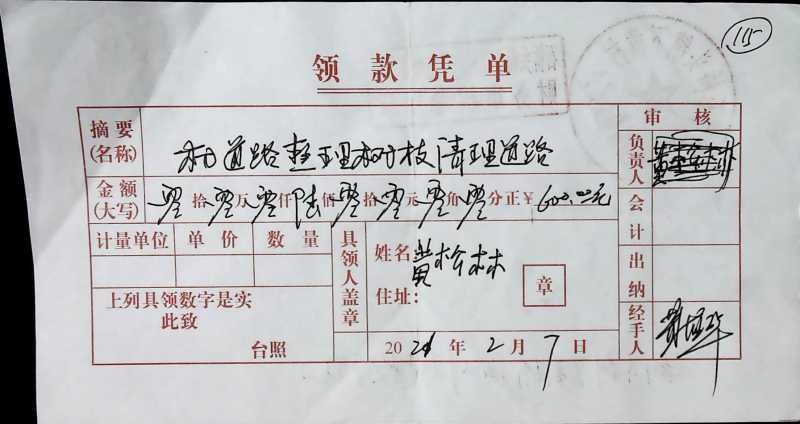 115
领款凭单
摘要
(名称)
村道路整理树枝清理道路
审核
负责人
金额
(大写)
零拾零万零仟陆佰零拾零元零角零分正￥600.00元
会计
计量单位 单价 数量
具领人盖章
姓名
黄松林
住址:
章
出纳
上列具领数字是实
此致
台照
2021年2月7日
经手人